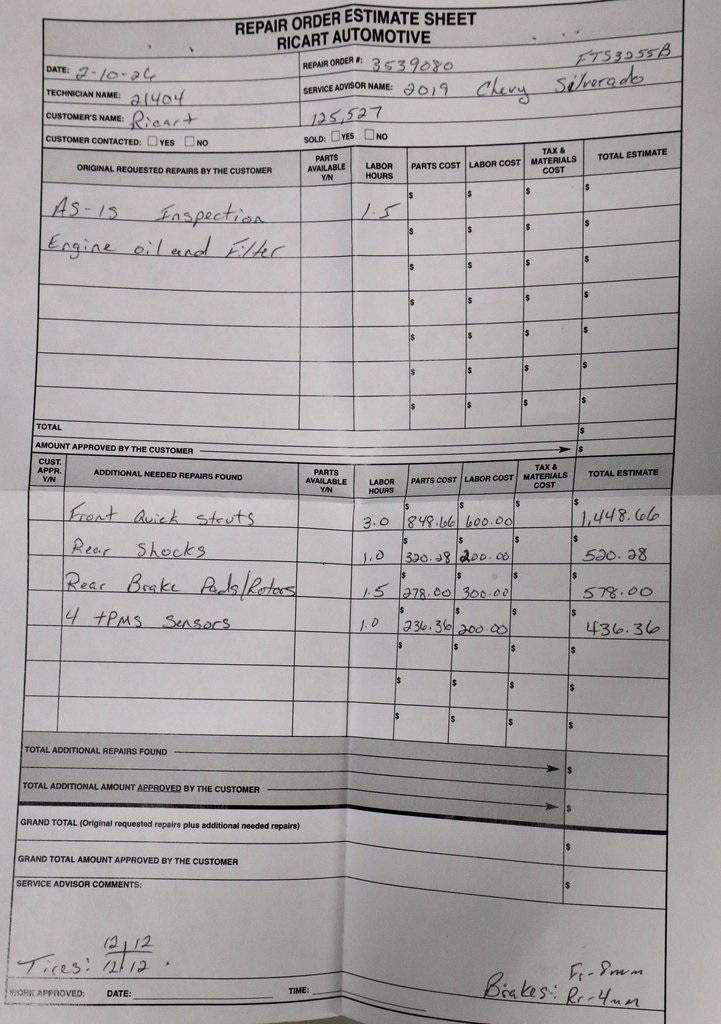 REPAIR ORDER ESTIMATE SHEET
RICART AUTOMOTIVE
DATE: 2-10-26
REPAIR ORDER #: 3539080 FTS3255B
TECHNICIAN NAME: 21404
SERVICE ADVISOR NAME: 2019 Chevy Silverado
CUSTOMER'S NAME: Ricart
125,527
CUSTOMER CONTACTED: YES NO
SOLD: YES NO
ORIGINAL REQUESTED REPAIRS BY THE CUSTOMER PARTS AVAILABLE Y/N LABOR HOURS PARTS COST LABOR COST TAX & MATERIALS COST TOTAL ESTIMATE
AS-IS Inspection 1.5 $ $ $ $
Engine oil and Filter $ $ $ $
$ $ $ $
$ $ $ $
$ $ $ $
$ $ $ $
$ $ $ $
TOTAL $
AMOUNT APPROVED BY THE CUSTOMER $
CUST. APPR. Y/N ADDITIONAL NEEDED REPAIRS FOUND PARTS AVAILABLE Y/N LABOR HOURS PARTS COST LABOR COST TAX & MATERIALS COST TOTAL ESTIMATE
Front Quick Struts 3.0 $ 848.66 $ 600.00 $ $ 1,448.66
Rear Shocks 1.0 $ 320.28 $ 200.00 $ $ 520.28
Rear Brake Pads/Rotors 1.5 $ 278.00 $ 300.00 $ $ 578.00
4 TPMS Sensors 1.0 $ 236.36 $ 200.00 $ $ 436.36
$ $ $ $
$ $ $ $
$ $ $ $
TOTAL ADDITIONAL REPAIRS FOUND $
TOTAL ADDITIONAL AMOUNT APPROVED BY THE CUSTOMER $
GRAND TOTAL (Original requested repairs plus additional needed repairs) $
GRAND TOTAL AMOUNT APPROVED BY THE CUSTOMER $
SERVICE ADVISOR COMMENTS:
Tires: 12 | 12
12 | 12
Brakes: Fr-8mm
Rr-4mm
WORK APPROVED: DATE: TIME: